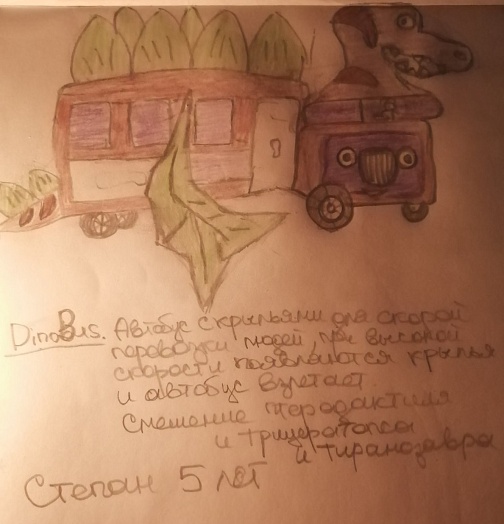 DinoBus. Автобус с крыльями для скорой
перевозки людей, при высокой
скорости появляются крылья
и автобус взлетает
Смешение птеродактиля
и трицератопса
и тиранозавра
Степан 5 лет